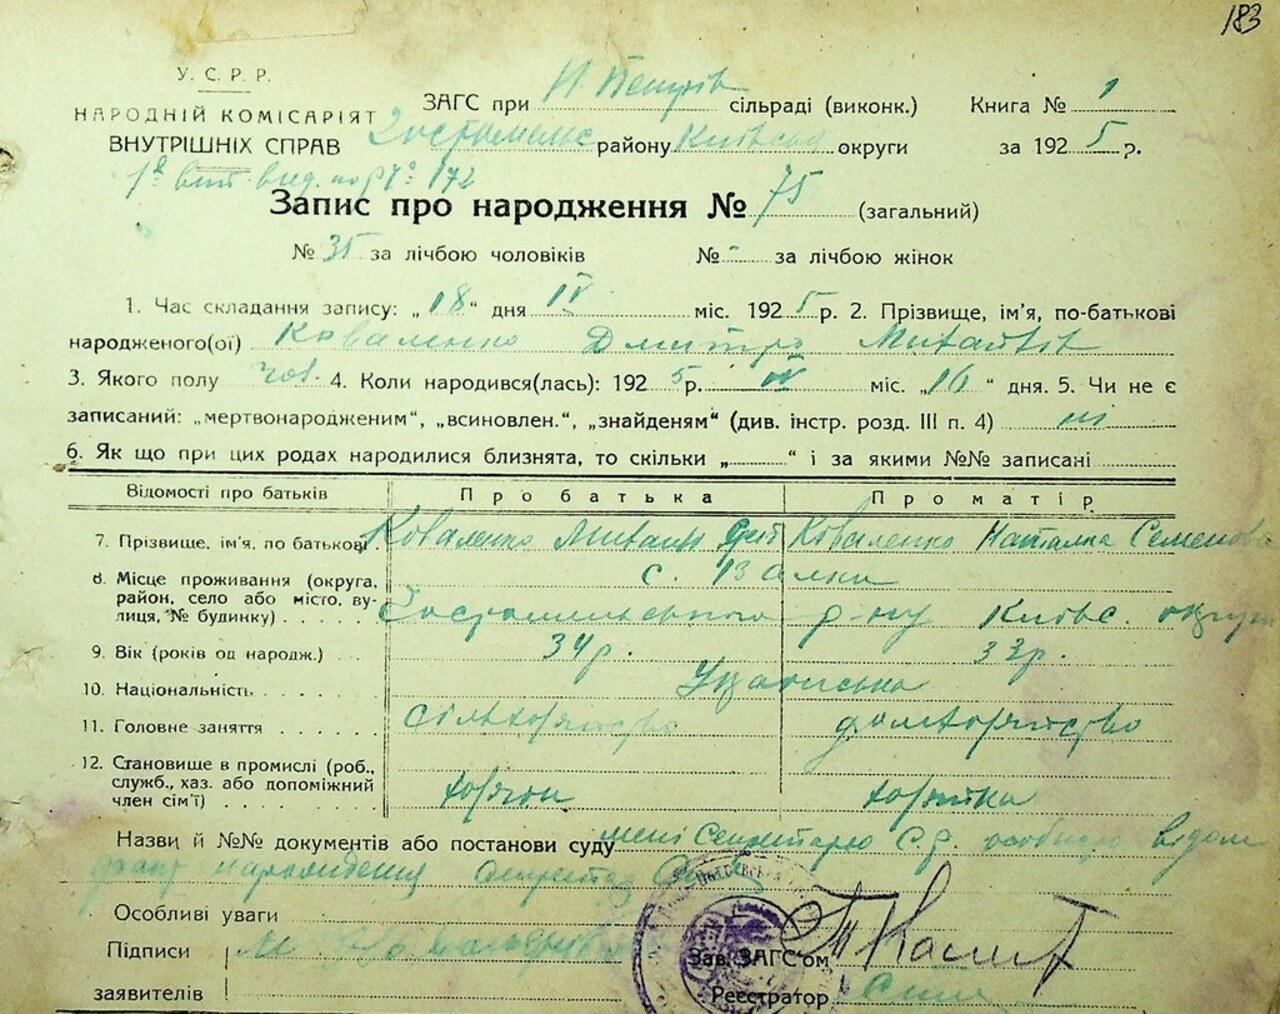 183
У. С. Р. Р.
НАРОДНІЙ КОМІСАРІЯТ
ВНУТРІШНІХ СПРАВ
ЗАГС при Н. Петрів сільраді (виконк.) Книга № 1
Гостомельс району Київськ округи за 1925 р.
172
Запис про народження № 75 (загальний)
№ 35 за лічбою чоловіків № - за лічбою жінок
1. Час складання запису: „18“ дня IV міс. 1925 р. 2. Прізвище, ім'я, по-батькові
народженого(ої) Коваленко Дмитро Михайлів
3. Якого полу чов. 4. Коли народився(лась): 1925 р. IV міс. „16“ дня. 5. Чи не є
записаний: „мертвонародженим“, „всиновлен.“, „знайденям“ (див. інстр. розд. III п. 4) ні
6. Як що при цих родах народилися близнята, то скільки „ “ і за якими №№ записані
Відомості про батьків Про батька Про матір
7. Прізвище, ім'я, по батькові Коваленко Михайло Коваленко Наталка Семенова
8. Місце проживання (округа, с. Валки
район, село або місто, ву-
лиця, № будинку) Гостомельського р-ну Київс. округи
9. Вік (років од народж.) 34 р. 33 р.
10. Національність Українська
11. Головне заняття сільхазяйство домхазяйство
12. Становище в промислі (роб.,
служб., хаз. або допоміжний
член сім'ї) хазяїн хазяйка
Назви й №№ документів або постанови суду мені Секретарю С.р. особисто відом
факт народження секретар
Особливі уваги
Підписи М
заявителів
Зав. ЗАГС'ом
Реєстратор